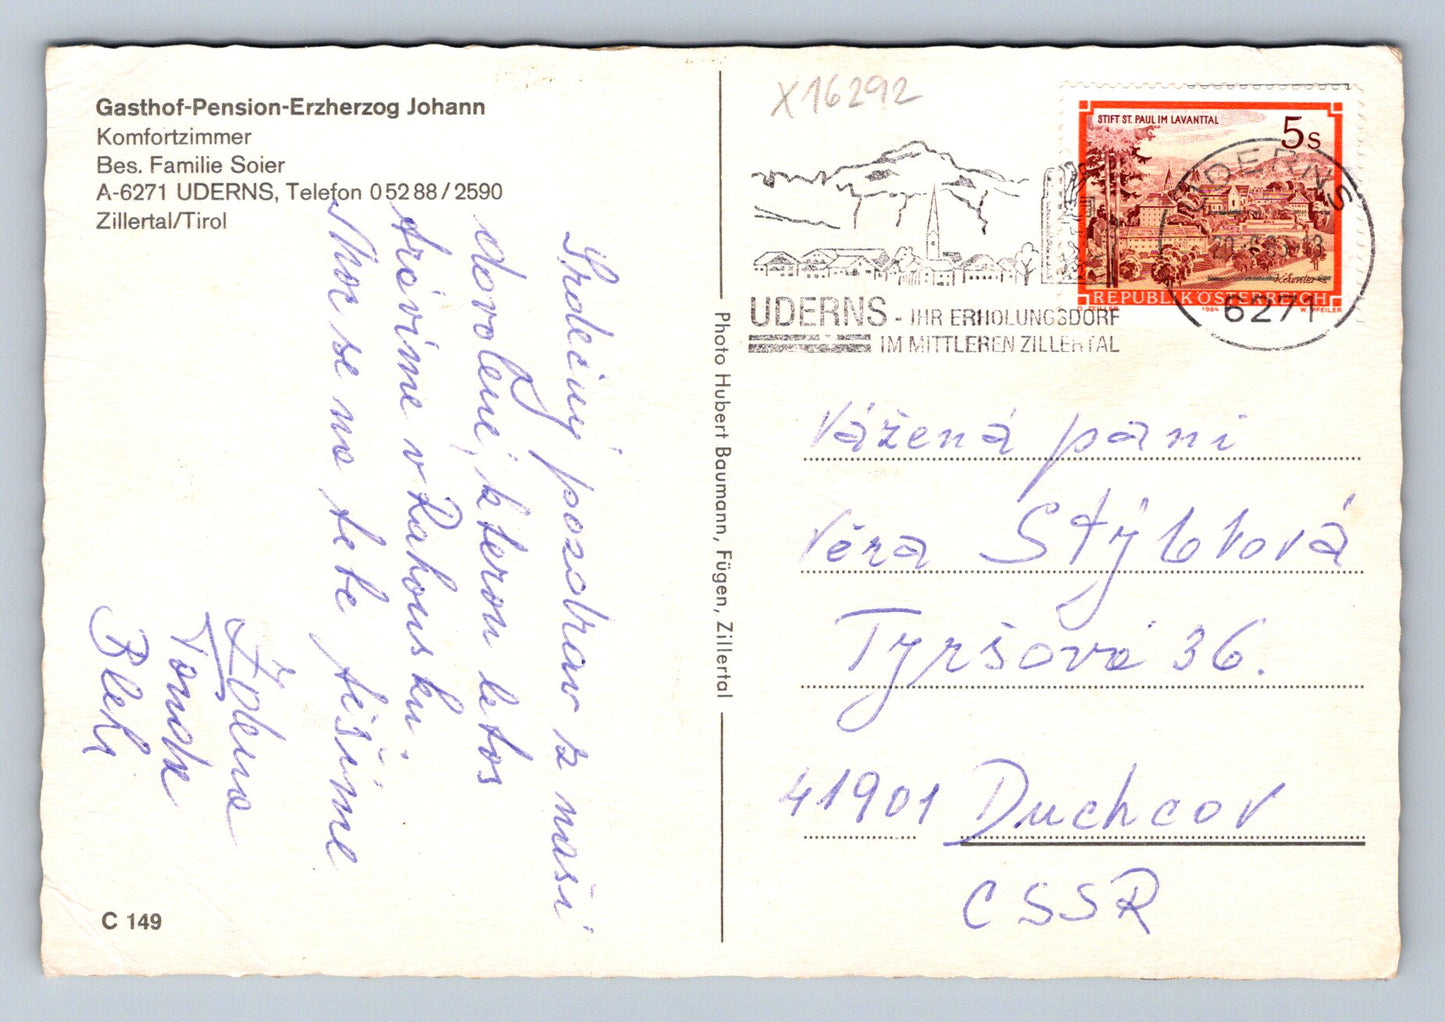 Gasthof-Pension-Erzherzog Johann
Komfortzimmer
Bes. Familie Soier
A-6271 UDERNS, Telefon 0 52 88 / 2590
Zillertal/Tirol
Srdečný pozdrav z naší
dovolené, kterou letos
trávíme v Rakousku.
Moc se na tebe těšíme
Tonda
C 149
Photo Hubert Baumann, Fügen, Zillertal
X16292
STIFT ST. PAUL IM LAVANTTAL
5s
REPUBLIK ÖSTERREICH
1984
W. PFEILER
UDERNS
6271
UDERNS - IHR ERHOLUNGSDORF
IM MITTLEREN ZILLERTAL
Vážená pani
Věra Stýblová
Tyršova 36.
41901 Duchcov
CSSR